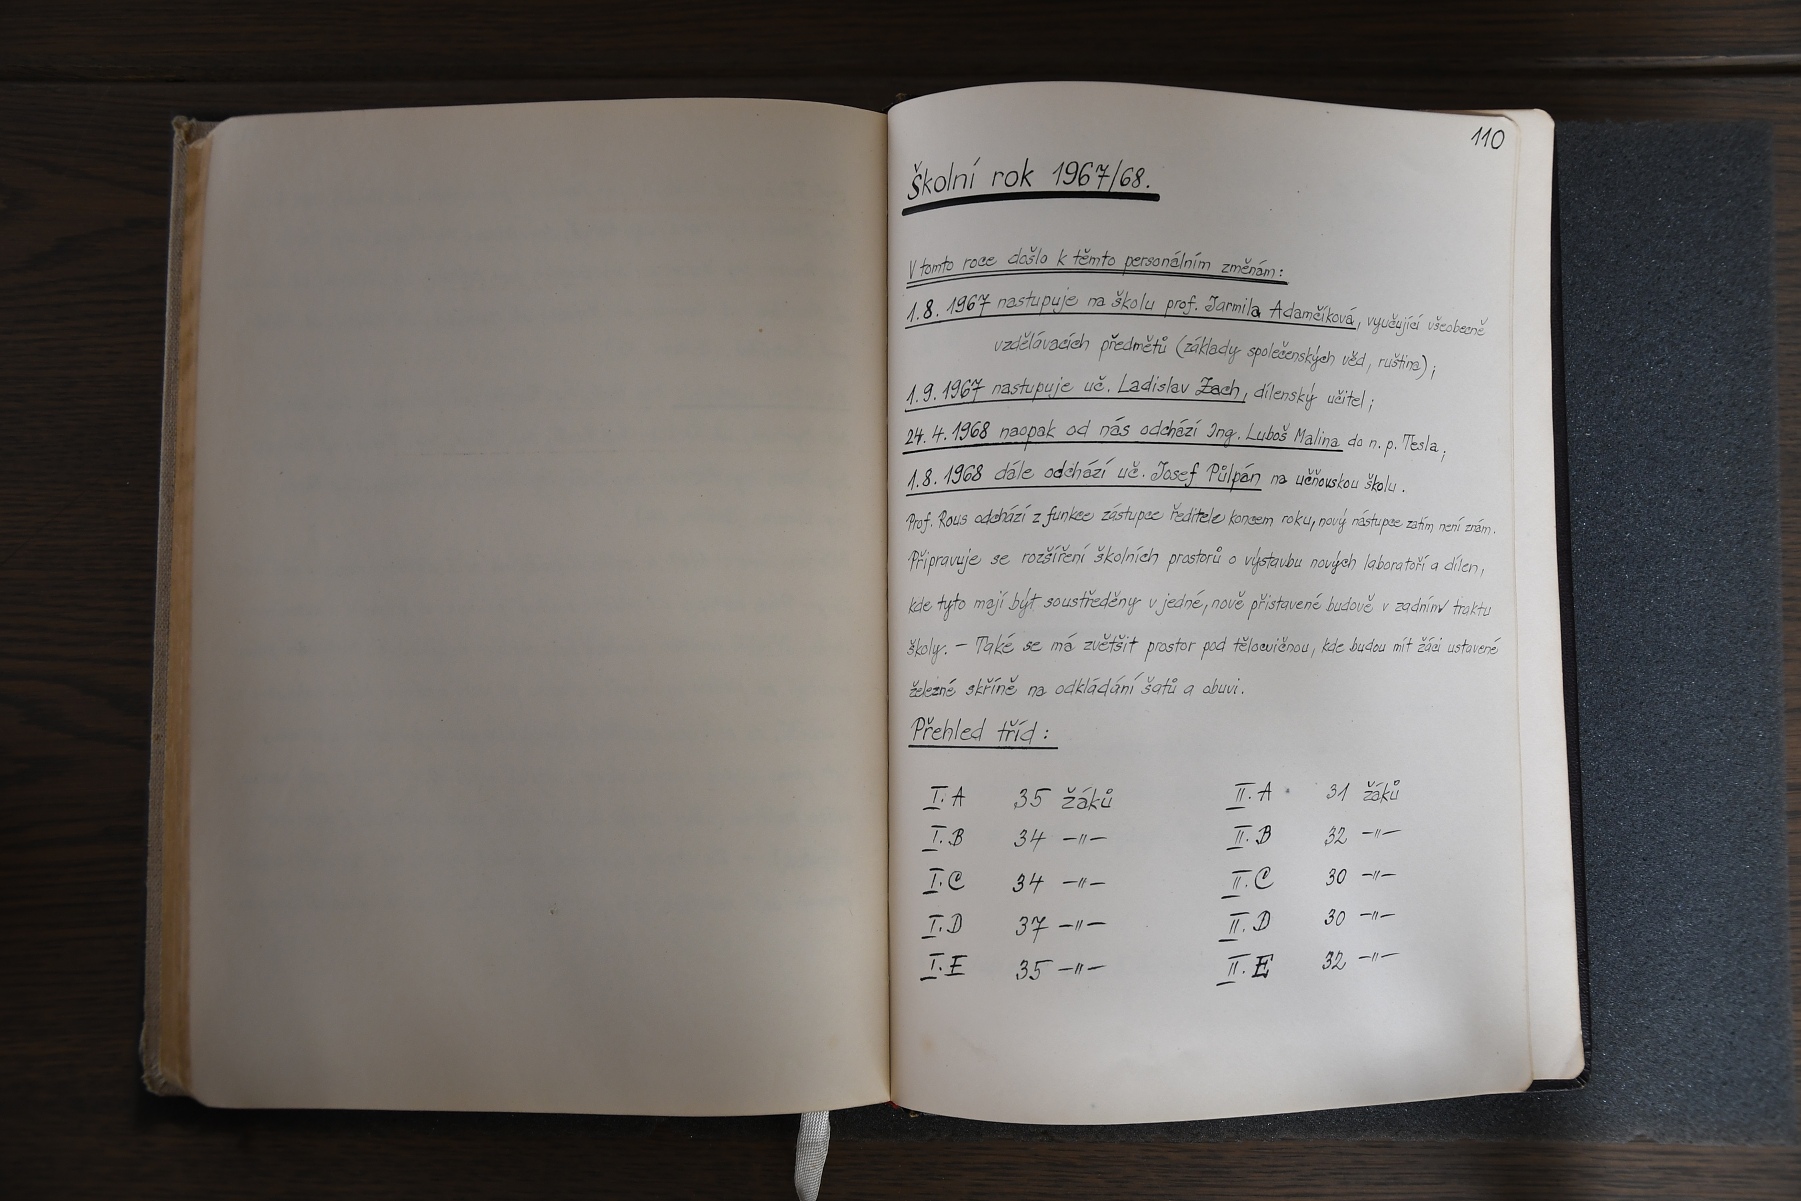 110
Školní rok 1967/68.
V tomto roce došlo k těmto personálním změnám:
1.8. 1967 nastupuje na školu prof. Jarmila Adamčíková, vyučující všeobecně
vzdělávacích předmětů (základy společenských věd, ruština);
1.9. 1967 nastupuje uč. Ladislav Zach, dílenský učitel;
24.4.1968 naopak od nás odchází Ing. Luboš Malina do n.p. Tesla;
1.8. 1968 dále odchází uč. Josef Půlpán na učňovskou školu.
Prof. Rous odchází z funkce zástupce ředitele koncem roku, nový nástupce zatím není znám.
Připravuje se rozšíření školních prostorů o výstavbu nových laboratoří a dílen,
kde tyto mají být soustředěny v jedné, nově přistavené budově v zadním traktu
školy. – Také se má zvětšit prostor pod tělocvičnou, kde budou mít žáci ustavené
železné skříně na odkládání šatů a obuvi.
Přehled tříd:
I.A 35 žáků II.A 31 žáků
I.B 34 –"– II.B 32 –"–
I.C 34 –"– II.C 30 –"–
I.D 37 –"– II.D 30 –"–
I.E 35 –"– II.E 32 –"–